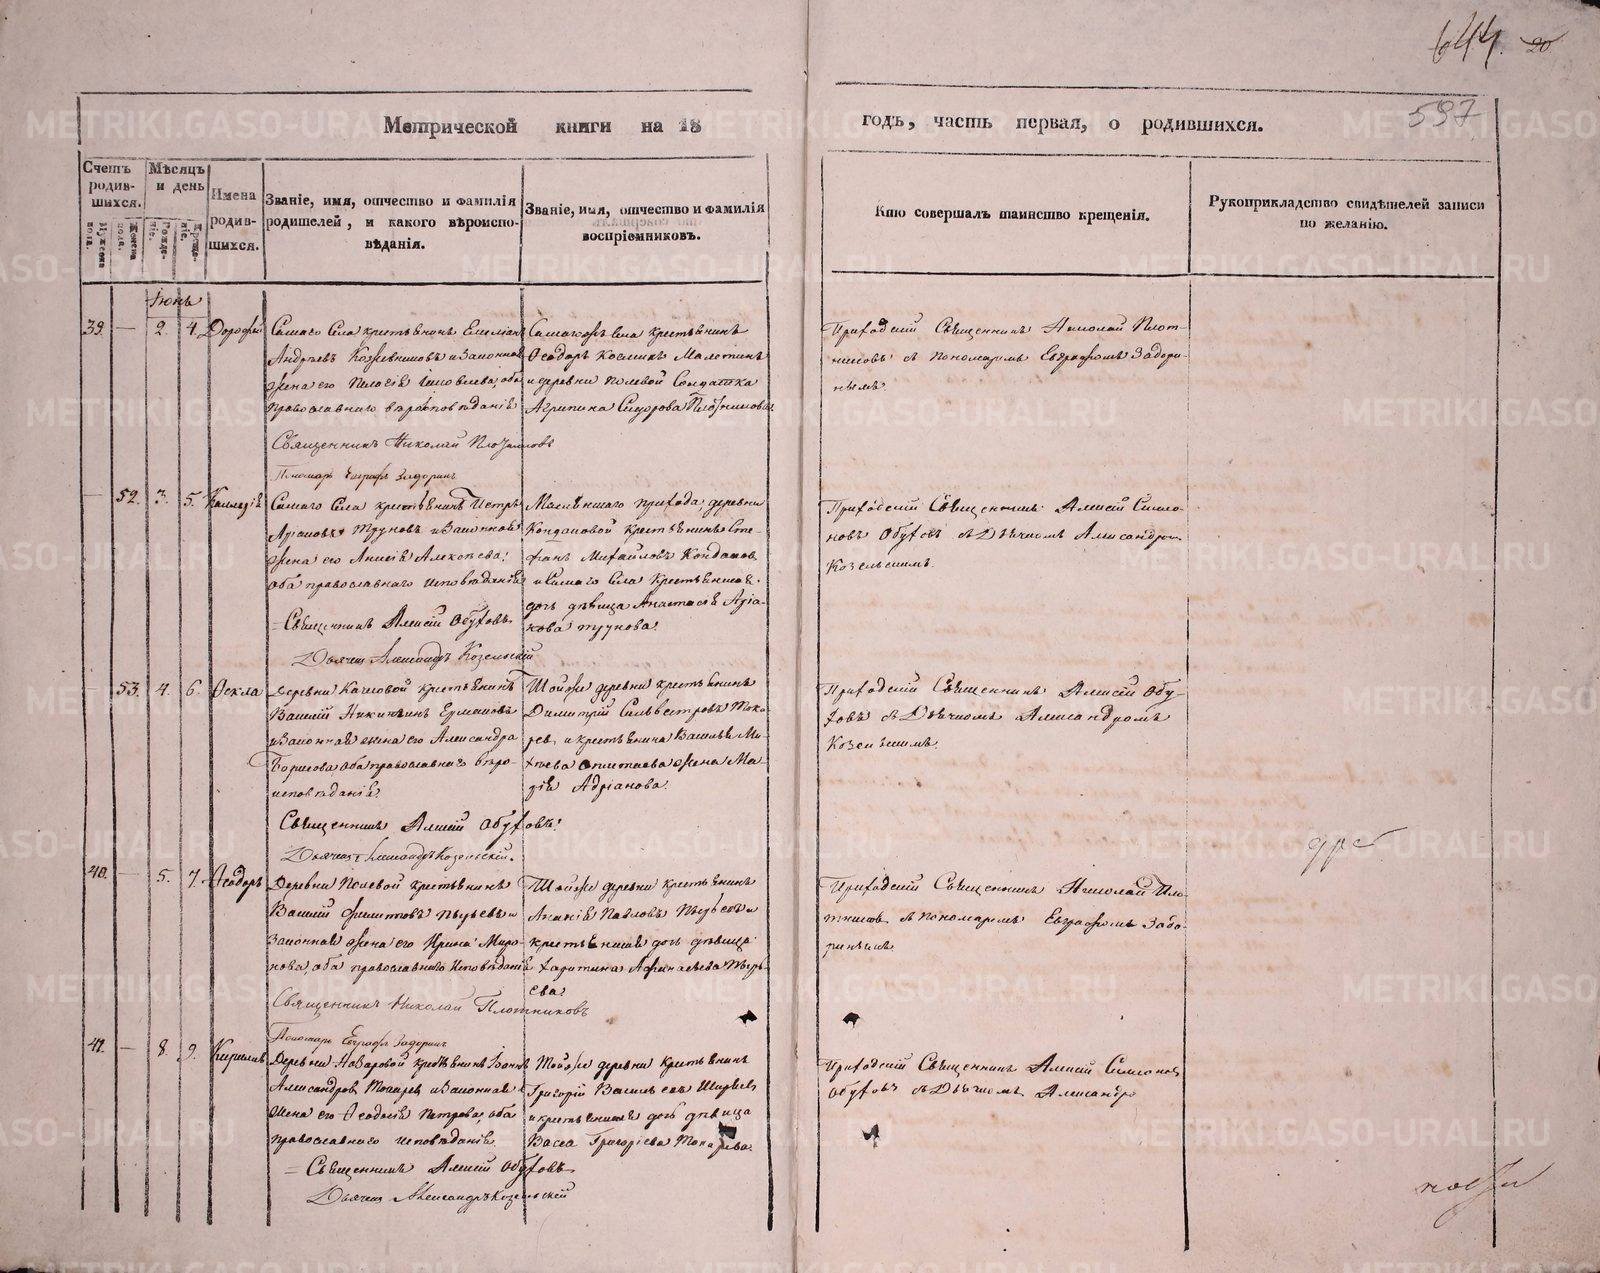 644. 20
597
Метрической книги на 18
годъ, часть первая, о родившихся.
Счетъ родив-шихся.
Мужеска пола.
Женска пола.
Мѣсяцъ и день
Рожде-нiе.
Креще-нiе.
Имена родив-шихся.
Званiе, имя, отчество и фамилiя
родителей, и какого вѣроиспо-
вѣданiя.
Званiе, имя, отчество и фамилiя
воспрiемниковъ.
Кто совершалъ таинство крещенiя.
Рукоприкладство свидѣтелей записи
по желанiю.
Iюнь
39. — 2. 4. Дорофей
Самаго Села крестьянинъ Емелiанъ
Андреевъ Кожевниковъ и Законная
жена его Пелагiя Iаковлева, оба
православнаго вѣроисповѣданiя
Священникъ Николай Плотниковъ
Пономарь Евграфъ Задоринъ
Самагожъ Села крестьянинъ
Ѳеодоръ Косминъ Малетинъ
и деревни Полевой Солдатка
Агрипина Сидорова Плотникова.
Приходскiй Священникъ Николай Плот-
никовъ съ пономаремъ Евграфомъ Задори-
нымъ.
— 52. 3. 5. Каллерiя
Самаго Села крестьянинъ Петръ
Трухов и Законная
жена его Анисiя Алексѣева,
оба православнаго исповѣданiя
Священникъ Алексiй Обуховъ.
Дьячекъ Александръ Козельскiй
прихода деревни
Кондаковой крестьянинъ Сте-
фанъ Михайловъ Кондаков
и Самаго Села крестьянина
дочь дѣвица Анастасiя Адрiа-
нова Трухова.
Приходскiй Священникъ Алексiй Симо-
новъ Обуховъ съ Дьячкомъ Александром
Козельскимъ.
— 53. 4. 6. Ѳекла
Деревни крестьянинъ
Василiй Никитинъ Ермаковъ
и Законная жена его Александра
Борисова оба православнаго вѣро-
исповѣданiя.
Священникъ Алексiй Обуховъ.
Дьячекъ Александръ Козельскiй.
Тойже деревни крестьянинъ
Димитрiй Сильвестровъ Тока-
рев и крестьянина Василья Ма-
твеева жена Ма-
рiя Адрiанова.
Приходскiй Священникъ Алексiй Обу-
ховъ съ Дьячкомъ Александромъ
Козельскимъ.
40. — 5. 7. Ѳеодоръ
Деревни Полевой крестьянинъ
Василiй Филиповъ Пырьевъ и
Законная жена его Ирина Миро-
нова, оба православнаго исповѣданiя
Священникъ Николай Плотниковъ
Пономарь Евграфъ Задоринъ
Тойже деревни крестьянинъ
Ананiя Павловъ Пырьевъ и
крестьянина дочь дѣвица
Харитина Афанасьева Пырь-
ева.
Приходскiй Священникъ Николай Пло-
тниковъ съ пономаремъ Евграфомъ Задо-
ринымъ.
41. — 8. 9. Кириллъ
Деревни крестьянинъ
Александров Токарев и Законная
жена его Ѳеодосiя Петрова, оба
православнаго исповѣданiя
Священникъ Алексiй Обуховъ
Дьячекъ Александръ Козельскiй
Тойже деревни крестьянинъ
Григорiй Васильевъ Ширяев
и крестьянина дочь дѣвица
Васса Григорiева Токарева.
Приходскiй Священникъ Алексiй Симонов
Обуховъ съ Дьячкомъ Александро
METRIKI.GASO-URAL.RU